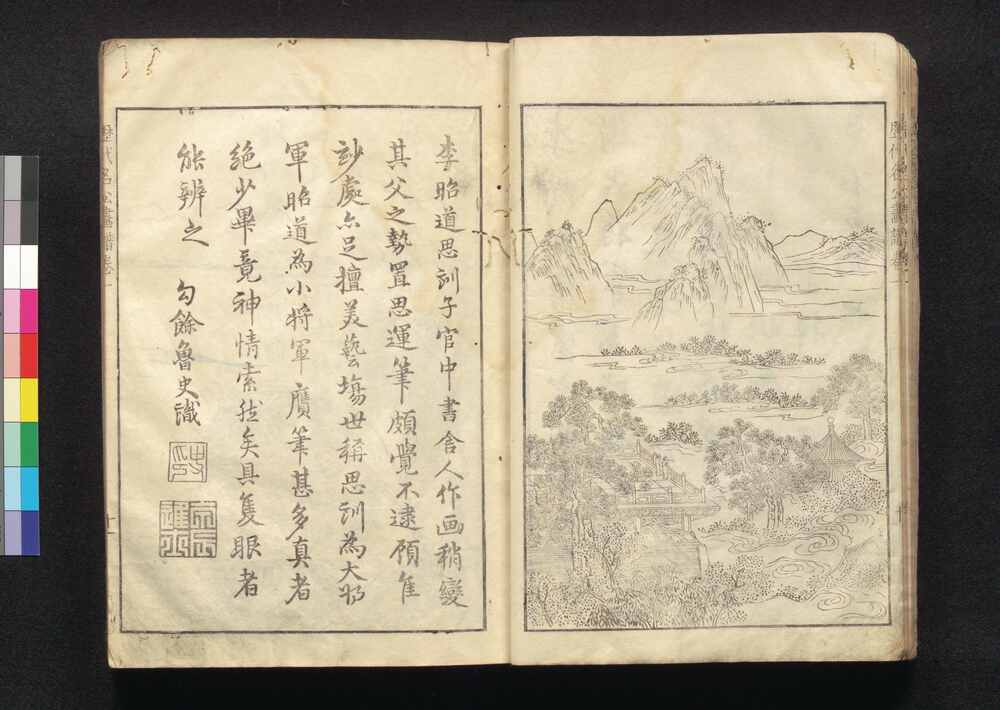 李昭道思訓子官中書舍人作画稍變
其父之勢置思運筆頗覺不逮顧隹
玅處亦足擅美藝塲世稱思訓為大将
軍昭道為小将軍贋筆甚多真者
絶少畢竟神情索然矣具隻眼者
能辨之
勾餘魯史識